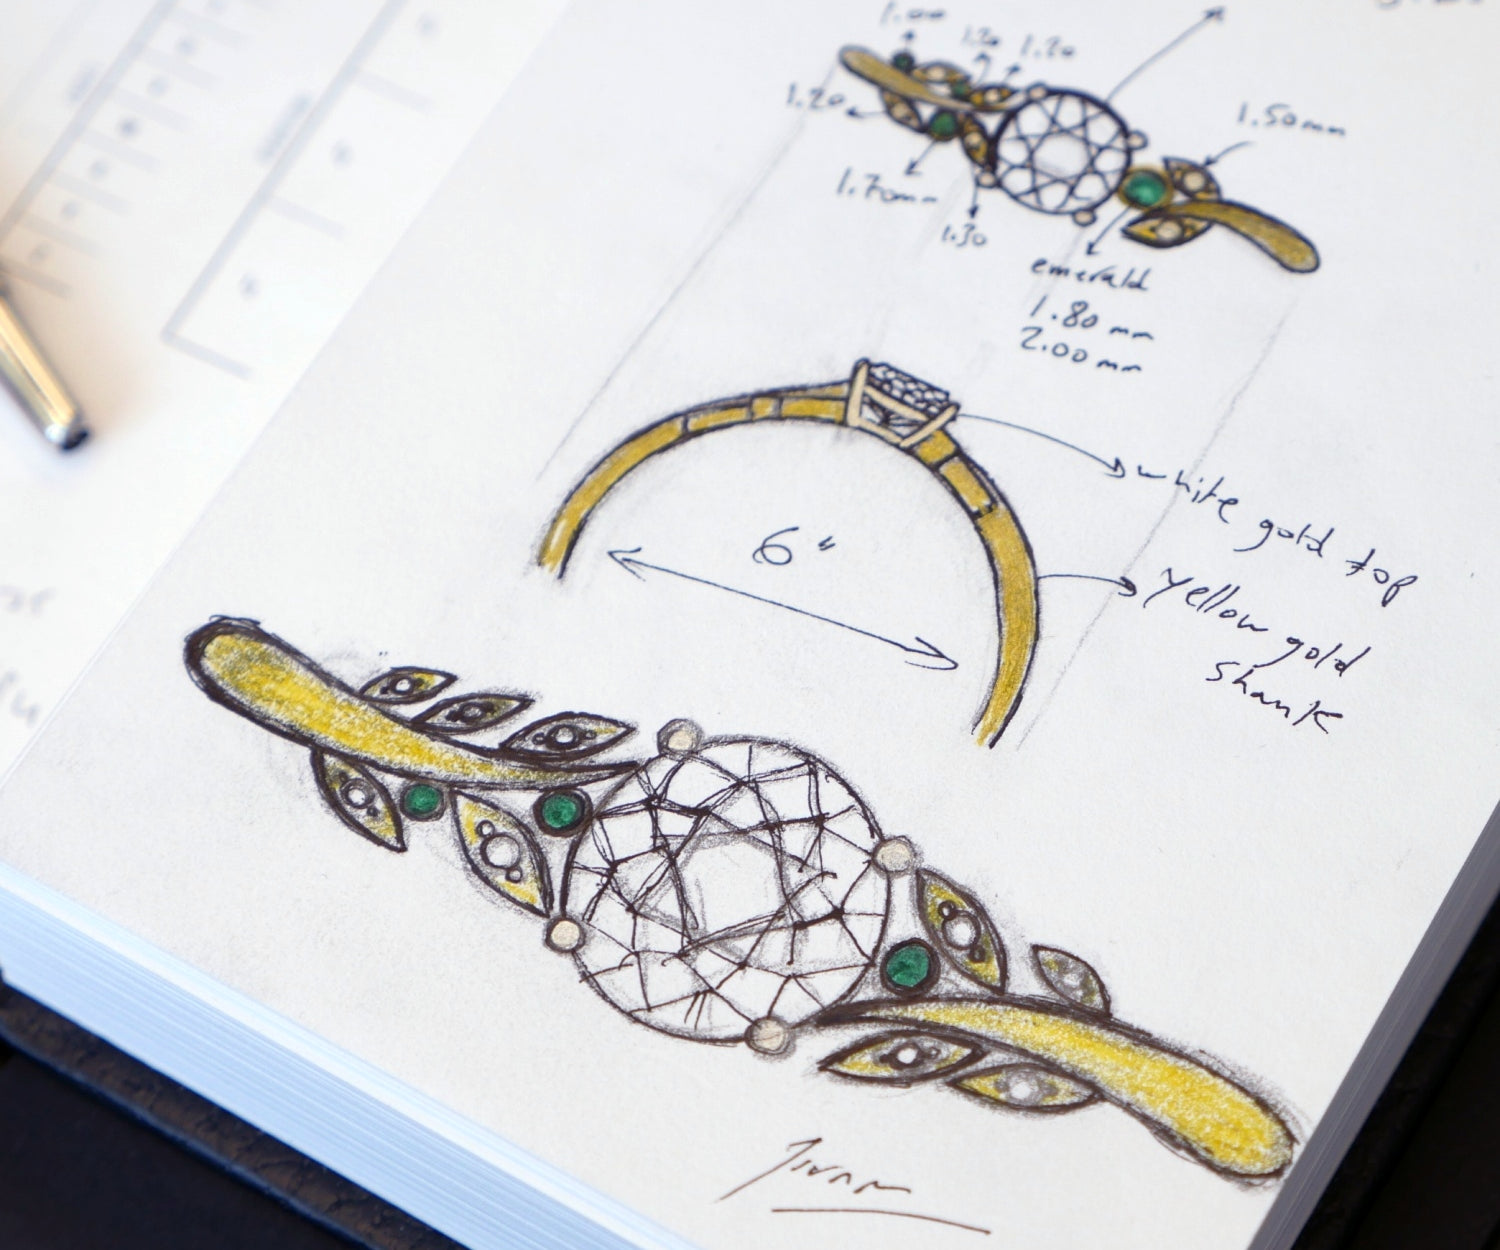 1.00
1.20 1.20
1.20
1.50mm
1.70mm
1.30
emerald
1.80 mm
2.00 mm
6"
white gold top
yellow gold
shank